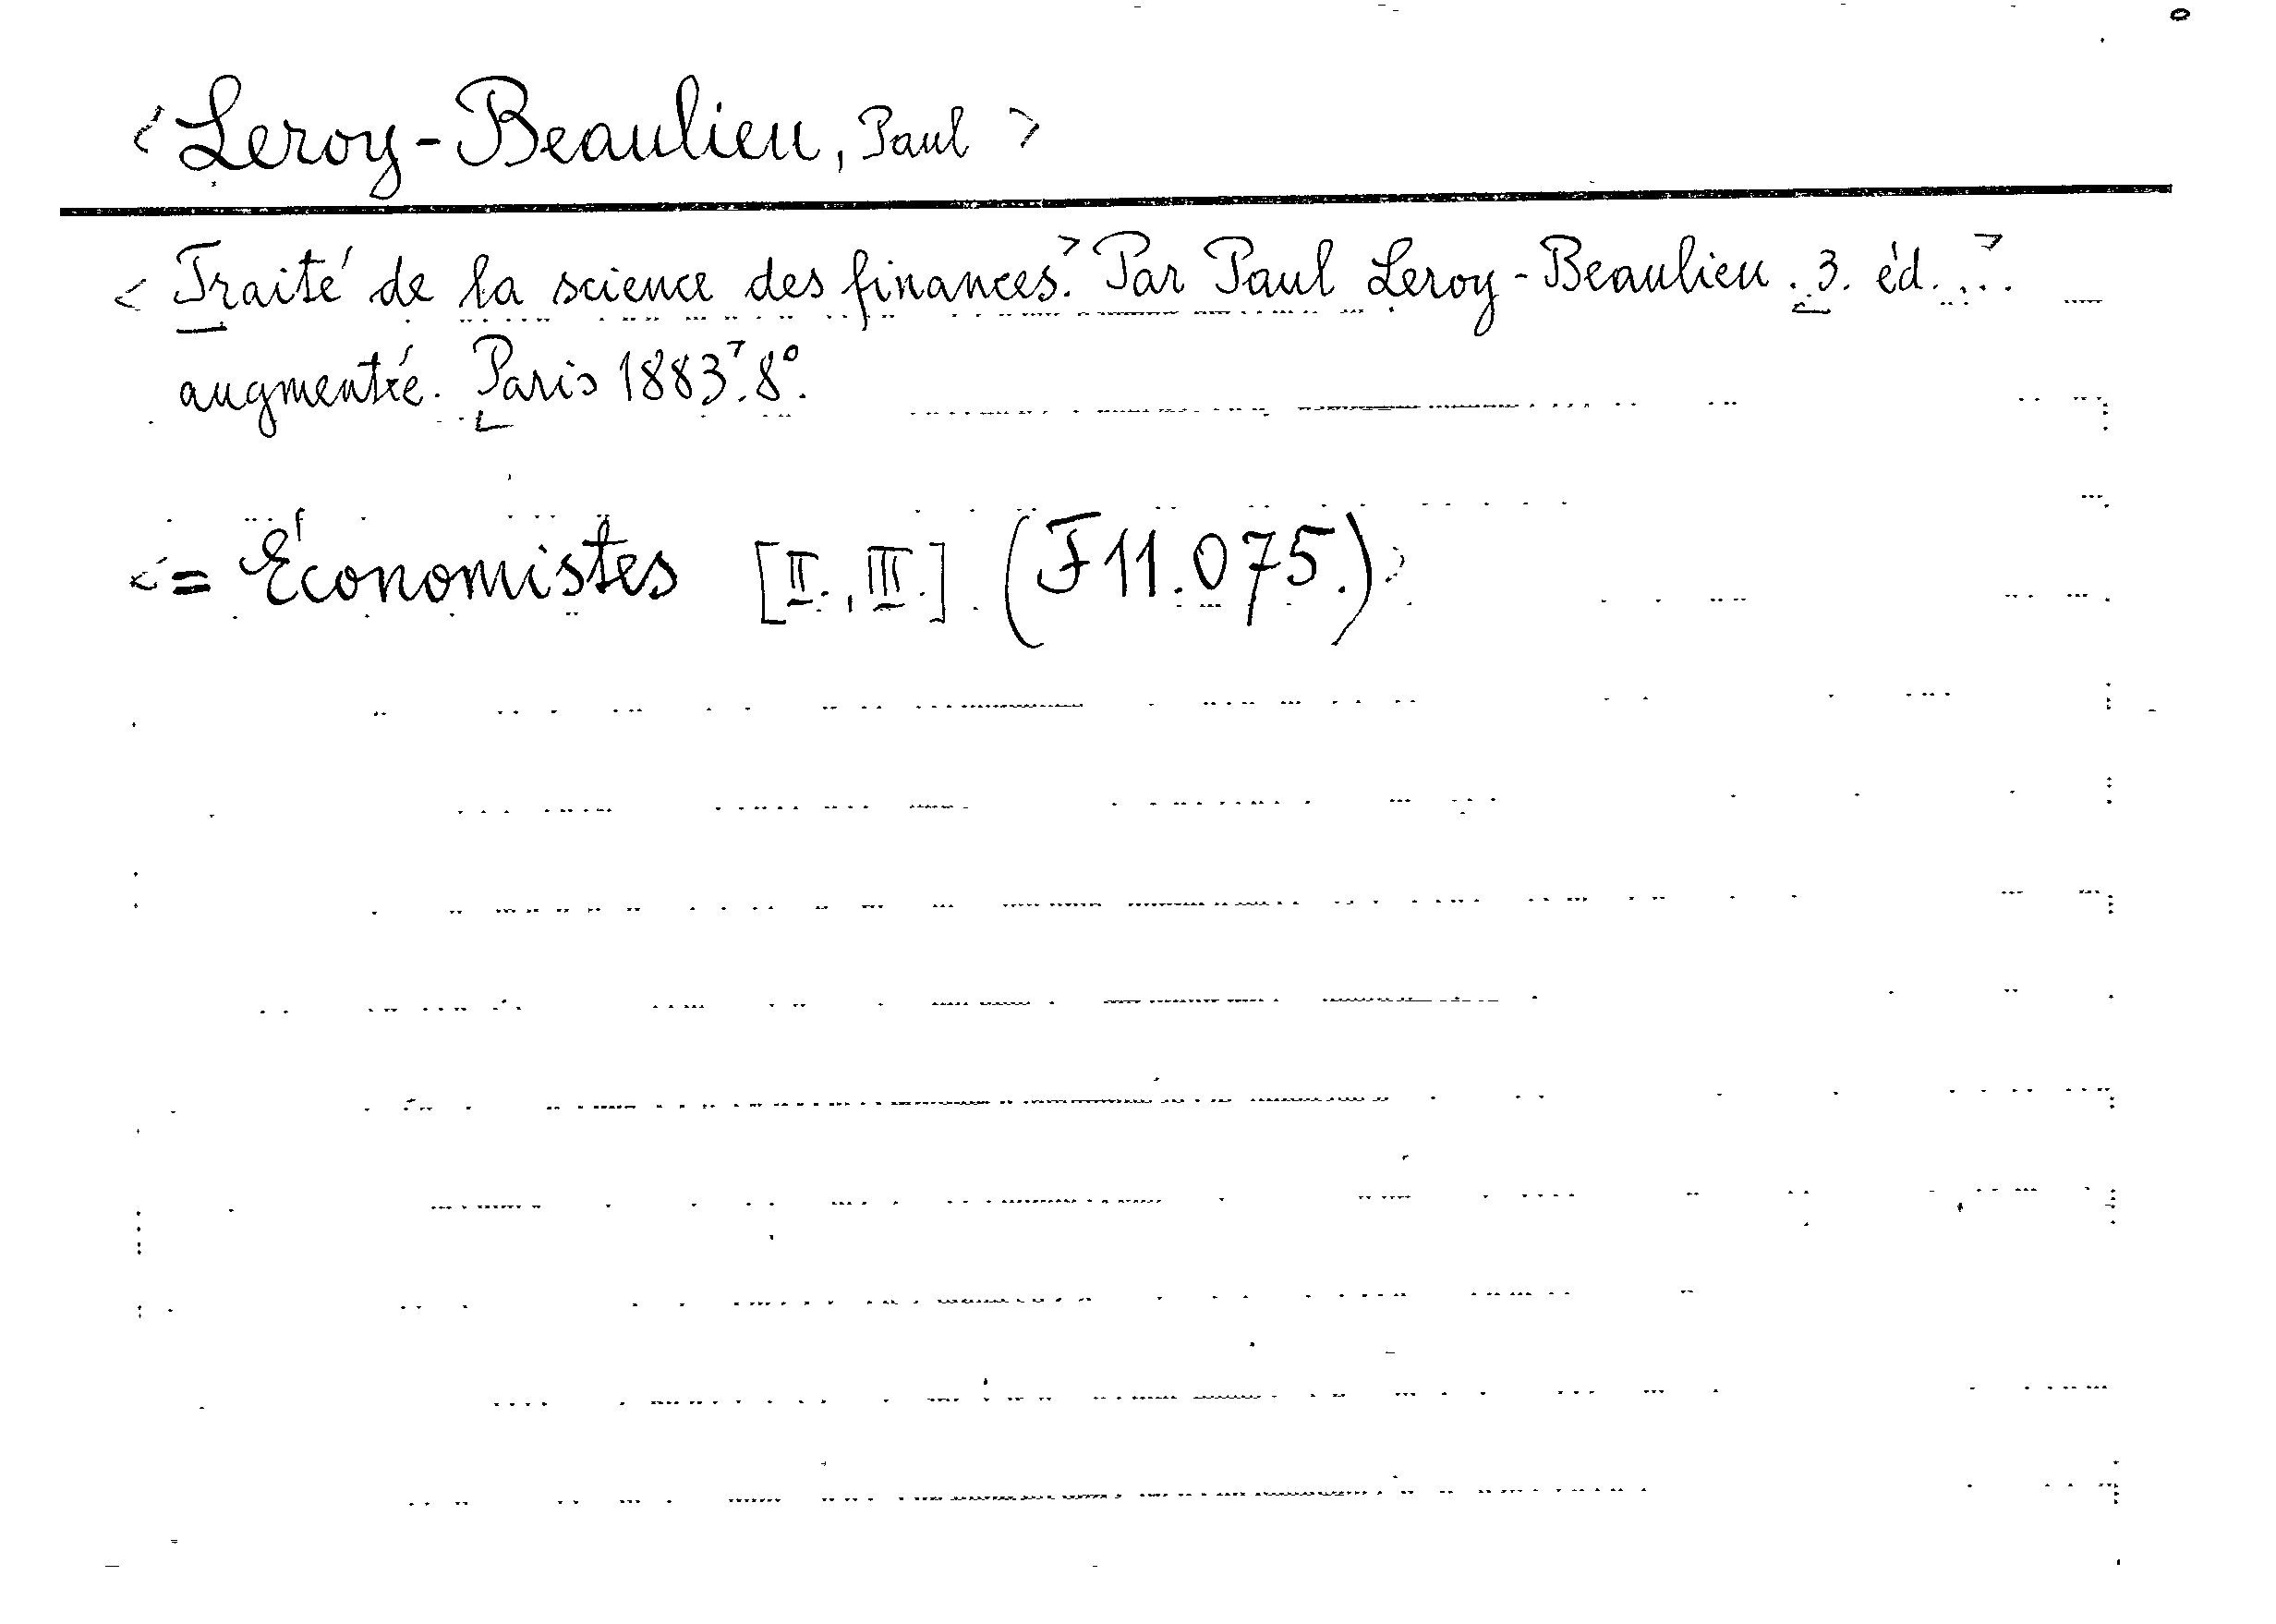 < Leroy-Beaulieu, Paul >
< Traité de la science des finances.> Par Paul Leroy-Beaulieu. 3. éd. ...>
augmentée. Paris 1883.> 8°.
< = Économistes [II., III.] (F 11.075.) >